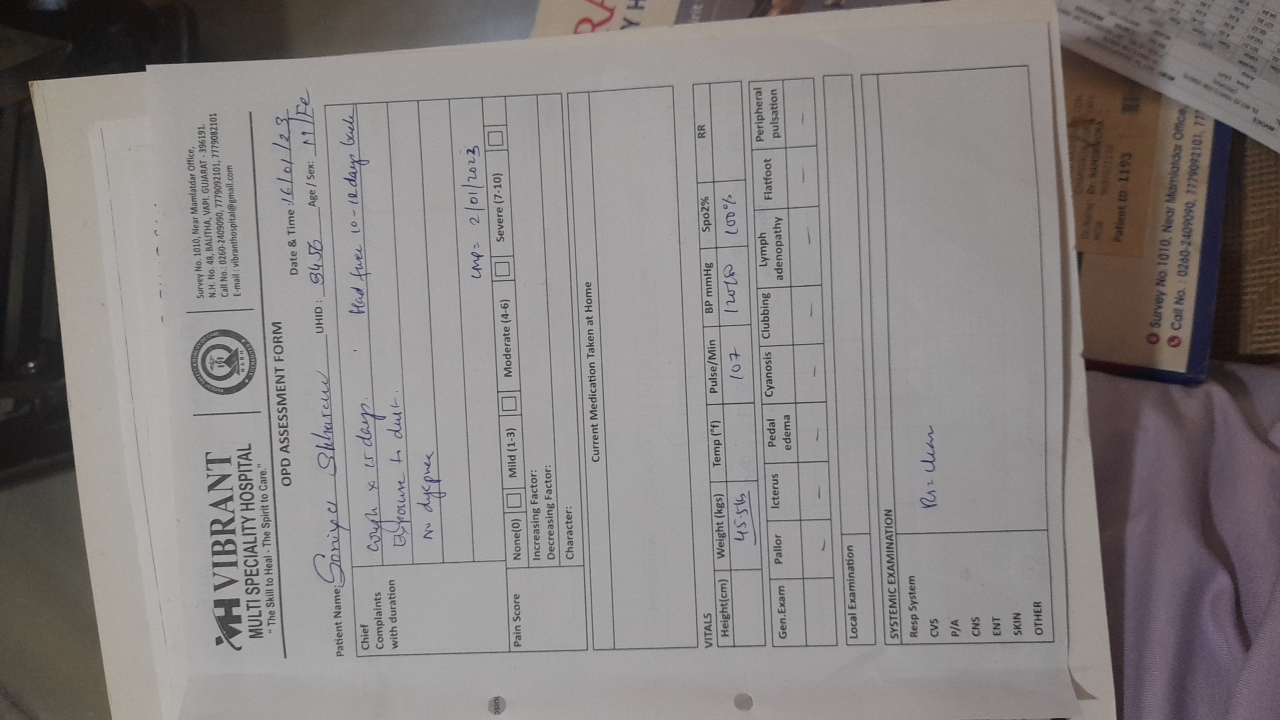 VH VIBRANT
MULTI SPECIALITY HOSPITAL
"The Skill to Heal - The Spirit to Care."
NABH
ACCREDITED
Survey No. 1010, Near Mamlatdar Office,
N.H. No. 48, BALITHA, VAPI. GUJARAT - 396191.
Call No.: 0260-2409090, 7779092101, 7779082101
E-mail : vibranthospital@gmail.com
OPD ASSESSMENT FORM
Date & Time : 16/01/23
Patient Name: Soniya UHID : Age / Sex: M/Fe
Chief Complaints with duration
cough x 15 days. Had fever 10-12 days back
Exposure to dust.
No dyspnea
LMP = 2/01/2023
Pain Score None(0) Mild (1-3) Moderate (4-6) Severe (7-10)
Increasing Factor:
Decreasing Factor:
Character:
Current Medication Taken at Home
VITALS
Height(cm) Weight (kgs) Temp (°f) Pulse/Min BP mmHg Spo2% RR
107 120/80 100%
Gen.Exam Pallor Icterus Pedal edema Cyanosis Clubbing Lymph adenopathy Flatfoot Peripheral pulsation
– – – – – – – –
Local Examination
SYSTEMIC EXAMINATION
Resp System
CVS
Rs = clear
P/A
CNS
ENT
SKIN
OTHER
Patient ID 1193
Survey No.1010, Near Mamlatdar Office,
Call No. : 0260-2409090, 7779092101, 777